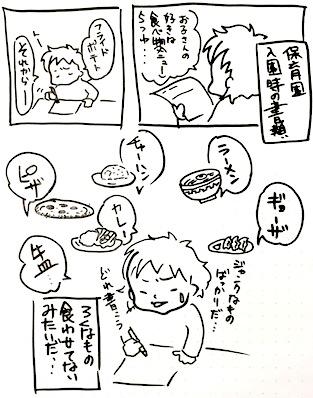 保育園
入園時の書類
お子さんの
好きな
食べ物ニュー
5つね…
フライド
ポテト
それからー
ラーメン
チャーハン
ピザ
ギョーザ
カレー
牛皿
ジャンクなもの
ばっかりだ…
どれ書こう
ろくなもの
食わせてない
みたいだ…